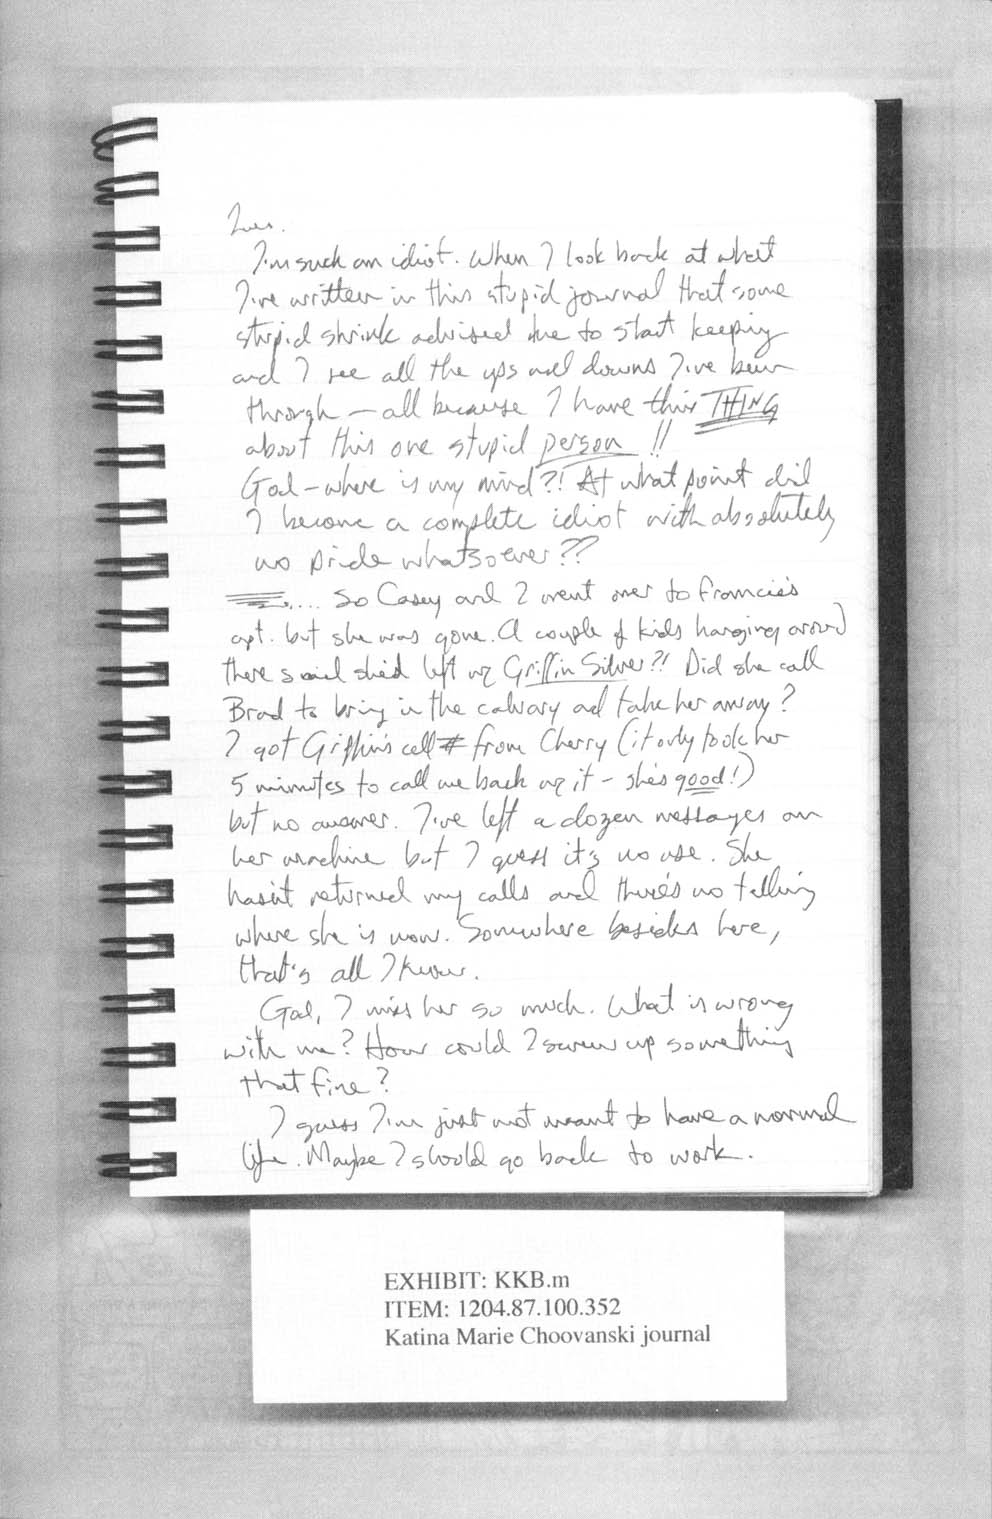 Tues.
I'm such an idiot. When I look back at what
I've written in this stupid journal that some
stupid shrink advised me to start keeping
and I see all the ups and downs I've been
through — all because I have this THING
about this one stupid person !!
God - where is my mind?! At what point did
I become a complete idiot with absolutely
no pride whatsoever??
.... So Casey and I went over to Francine's
apt. but she was gone. A couple of kids hanging around
there said she'd left w/ Griffin Silver?! Did she call
Brad to bring in the calvary and take her away?
I got Griffin's cell # from Cherry (it only took her
5 minutes to call me back w/ it - she's good!)
but no answer. I've left a dozen messages on
her machine but I guess it's no use. She
hasn't returned my calls and there's no telling
where she is now. Somewhere besides here,
that's all I know.
God, I miss her so much. What is wrong
with me? How could I screw up something
that fine?
I guess I'm just not meant to have a normal
life. Maybe I should go back to work.
EXHIBIT: KKB.m
ITEM: 1204.87.100.352
Katina Marie Choovanski journal